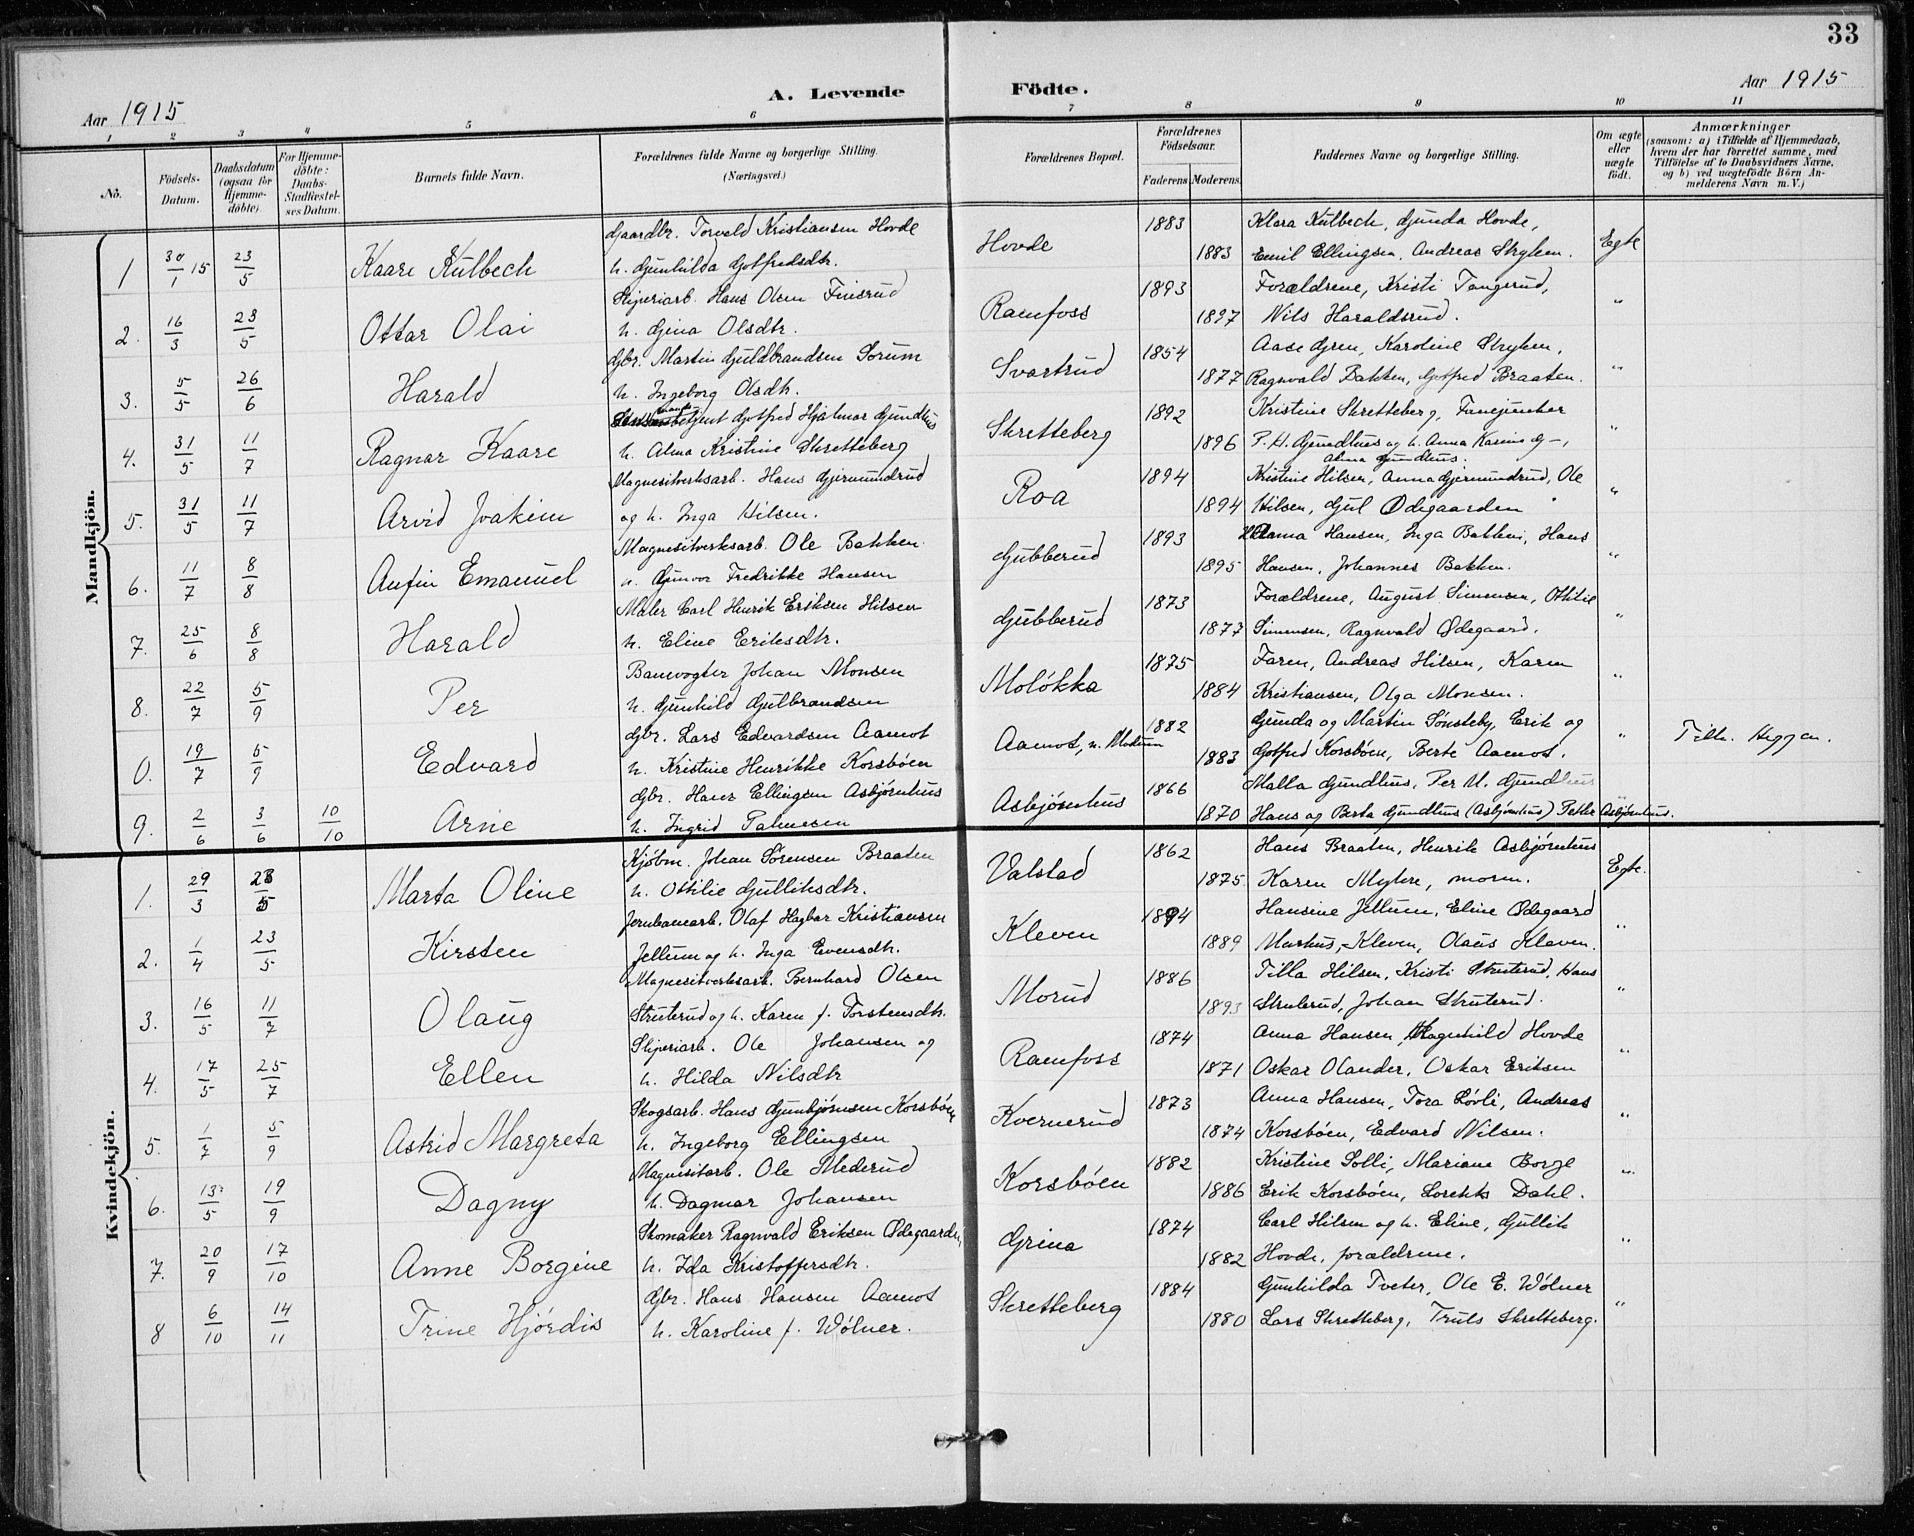 33
Aar 1915
A. Levende Födte.
Aar 1915
1 2 3 4 5 6 7 8 9 10 11
Nö.
Födsels-Datum.
Daabsdatum (ogsaa for Hjemme-döbte)
For Hjemme-döbte: Daabs-Stadfæstel-ses Datum.
Barnets fulde Navn.
Forældrenes fulde Navne og borgerlige Stilling. (Næringsvei.)
Forældrenes Bopæl.
Forældrenes Födselsaar.
Faderens Moderens.
Faddernes Navne og borgerlige Stilling.
Om ægte eller uægte födt.
Anmærkninger (saasom: a) i Tilfælde af Hjemmedaab, hvem der har forrettet samme, med Tilföielse af to Daabsvidners Navne, og b) ved uægtefödte Börn An-melderens Navn m. V.)
Mandkjön.
Gaardbr. Torvald Kristiansen Hovde 1883 Klara Kulbech, Gunda Hovde,
1 30/1 15 23/5 Kaare Kulbech h. Gunhilda Gotfredsdtr. Hovde 1883 Emil Ellingsen, Andreas Skylen. Egte
Sliperiarb. Hans Olsen Finsrud 1893 Forældrene, Kristi Tangerud,
2. 16/3 23/5 Ottar Olai h. Gina Olsdtr. Ramfoss 1897 Nils Haraldsrud. "
Gbr. Martin Guldbrandsen Sorum 1854 Aase Gren, Karoline Skylen,
3. 5/5 26/6 Harald h. Ingeborg Olsdtr. Svartrud 1877 Ragnvald Bakken, Gotfred Braaten. "
betjent Gotfred Hjalmar Gundhus 1892 Kristine Skretteberg, Fanejunker
4. 31/5 11/7 Ragnar Kaare h. Alma Kristine Skretteberg Skretteberg 1896 P. H. Gundhus og h. Anna Karine G-, "
Alma Gundhus.
Magnesitverksarb. Hans Gjermundrud 1894 Kristine Hilsen, Anna Gjermundrud, Ole
5. 31/5 11/7 Arvid Joakim og h. Inga Hilsen. Roa 1894 Hilsen, Gul Ødegaarden "
Magnesitverksarb. Ole Bakken 1893 Hanna Hansen, Inga Bakken, Hans
6. 11/7 8/8 Anfin Emanuel h. Gunvor Fredrikke Hansen Gubberud 1895 Hansen, Johannes Bakken. "
Maler Carl Henrik Eriksen Hilsen 1873 Forældrene, August Simensen, Othilie
7. 25/6 8/8 Harald h. Eline Eriksdtr. Gubberud 1877 Simensen, Ragnvald Ødegaard. "
Banevogter Johan Monsen 1875 Faren, Andreas Hilsen, Karen
8. 22/7 5/9 Per h. Gunhild Gulbrandsen Moløkka 1884 Kristiansen, Olga Monsen. "
Gbr. Lars Edvardsen Aamot 1882 Gunda og Martin Sønsteby, Erik og
0. 19/7 5/9 Edvard h. Kristine Henrikke Korsbøen Aamot, n. Modum 1883 Gotfred Korsbøen, Berte Aamot. " Tilh. Heggen.
Gbr. Hans Ellingsen Asbjørnhus 1866 Malla Gundhus, Per H. Gundhus
9. 2/6 3/6 10/10 Arne h. Ingrid Palmesen Asbjørnhus 1870 Hans og Berta Gundhus (Asbjørnhus) Petter Asbjørnhus.
Kvindekjön.
Kjøbm. Johan Sørensen Braaten 1862 Hans Braaten, Henrik Asbjørnhus
1. 29/3 23/5 Marta Oline h. Ottilie Gulliksdtr. Valstad 1875 Karen Myhre, moren. Egte.
Jernbanearb. Olaf Hagbar Kristiansen 1894 Hansine Jellum, Eline Ødegaard
2. 1/4 23/5 Kirsten Jellum og h. Inga Evensdtr. Kleven 1889 Markus Kleven, Olaus Kleven. "
Magnesitverksarb. Bernhard Olsen 1886 Tilla Hilsen, Kristi Struterud, Hans
3. 16/5 11/7 Olaug Struterud og h. Karen f. Torstensdtr. Morud 1893 Struterud, Johan Struterud. "
Sliperiarb. Ole Johansen og 1874 Anna Hansen, Ragnhild Hovde
4. 17/5 25/7 Ellen h. Hilda Nilsdtr Ramfoss 1871 Oskar Olander, Oskar Eriksen "
Skogsarb. Hans Gunbjørnsen Korsbøen 1873 Anna Hansen, Tora Løvli, Andreas
5. 1/7 5/9 Astrid Margreta h. Ingeborg Ellingsen Kvernerud 1874 Korsbøen, Edvard Nilsen. "
Magnesitarb. Ole Mederud 1882 Kristine Solli, Mariane Borge
6. 13/5 19/9 Dagny h. Dagmar Johansen Korsbøen 1886 Erik Korsbøen, Dahl. "
Skomaker Ragnvald Eriksen Ødegaarden, 1874 Carl Hilsen og h. Eline, Gullik
7. 20/9 17/10 Anne Borgine h. Ida Kristoffersdtr. Grina 1882 Hovde, forældrene. "
Gbr. Hans Hansen Aamot 1884 Gunhilda Tveter, Ole E. Wølner
8 6/10 14/11 Trine Hjørdis h. Karoline f. Wølner. Skretteberg 1880 Lars Skretteberg, Truls Skretteberg. "